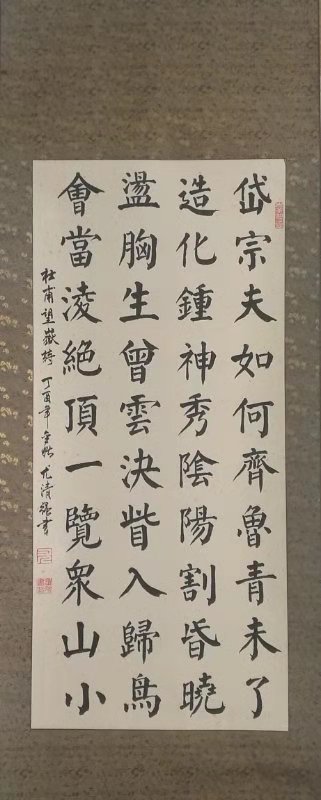 岱宗夫如何齊魯青未了
造化鍾神秀陰陽割昏曉
盪胸生曾雲決眥入歸鳥
會當淩絕頂一覽衆山小
杜甫望嶽 丁酉年 尤清 書